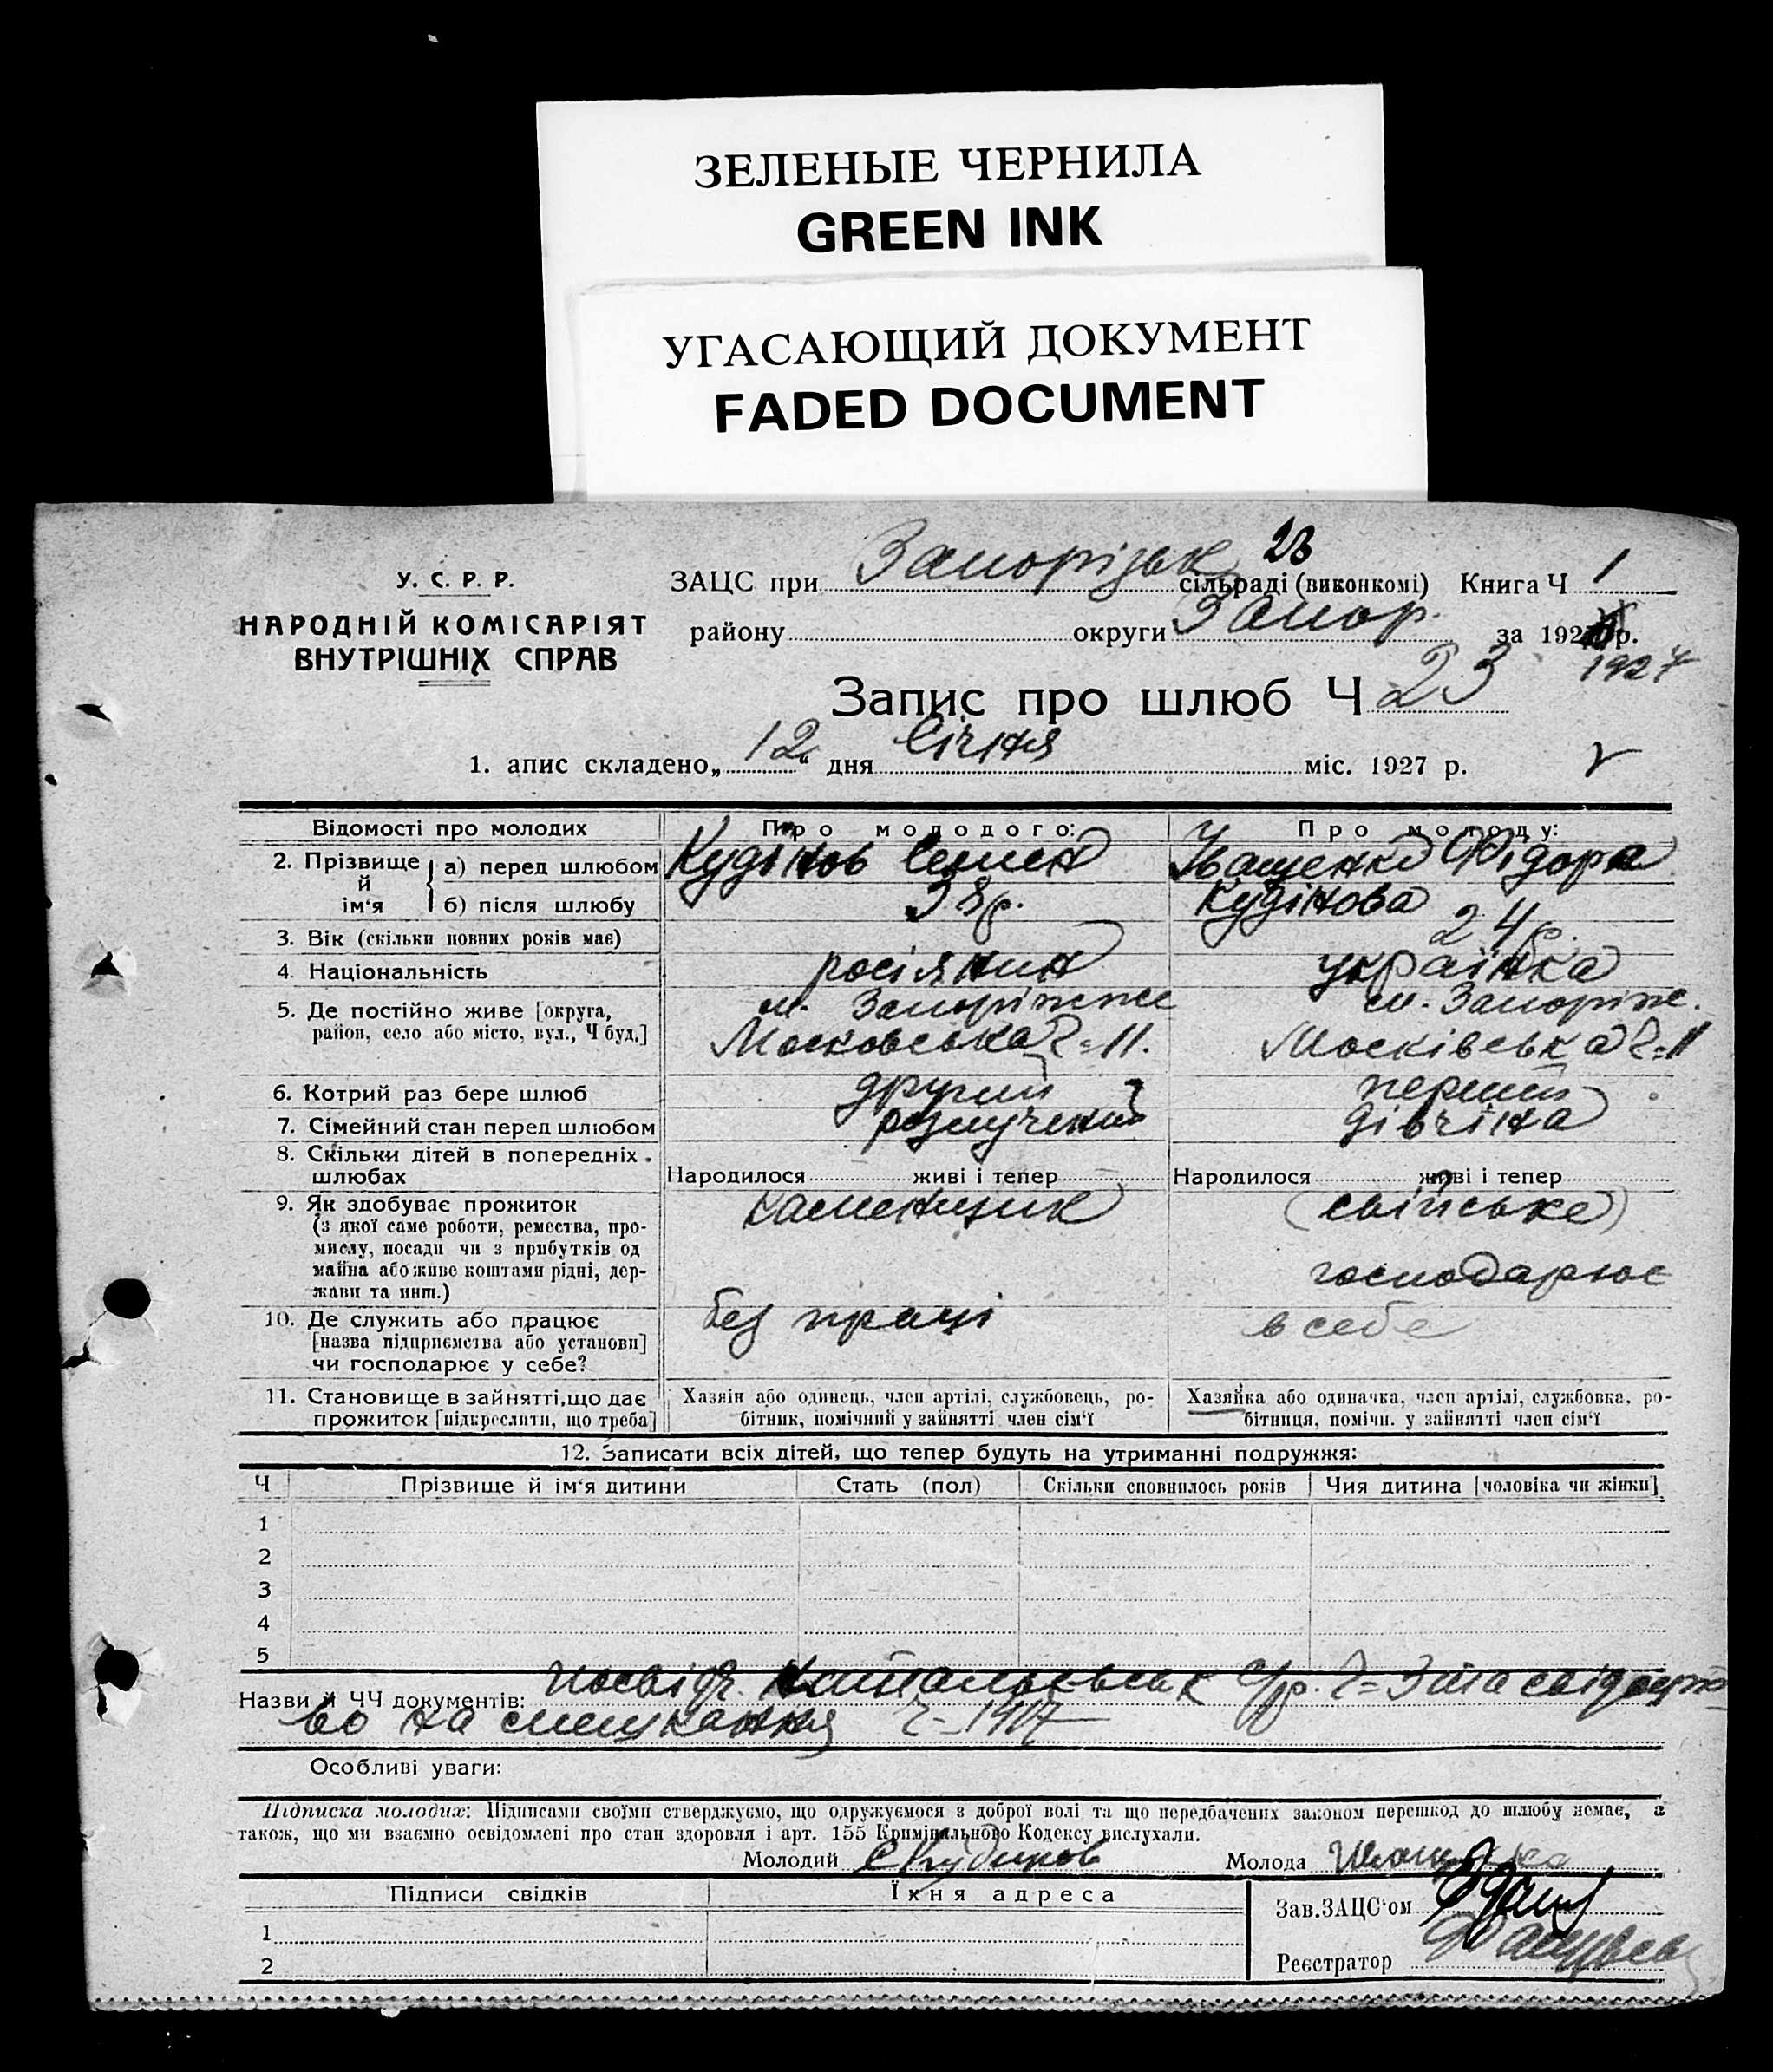 ЗЕЛЕНЫЕ ЧЕРНИЛА
GREEN INK
УГАСАЮЩИЙ ДОКУМЕНТ
FADED DOCUMENT
23
У. С. Р. Р.
НАРОДНІЙ КОМІСАРІЯТ
ВНУТРІШНІХ СПРАВ
ЗАЦС при Запорізьк сільраді (виконкомі) Книга Ч 1
району округи Запор. за 192 р.
1927
Запис про шлюб Ч 23
1. апис складено „12“ дня Січня міс. 1927 р.
Відомості про молодих Про молодого: Про молоду:
2. Прізвище й ім‘я а) перед шлюбом Кудінов Семен Іващенко Фідора
б) після шлюбу Кудінова
3. Вік (скільки повних років має) 38р. 24р.
4. Національність росіянин українка
5. Де постійно живе [округа, м. Запоріжже м. Запоріж.
район, село або місто, вул., Ч буд.] Московська Ч=11. Москівська Ч=11
6. Котрий раз бере шлюб другий перший
7. Сімейний стан перед шлюбом розлучений дівчіна
8. Скільки дітей в попередніх шлюбах Народилося живі і тепер Народилося живі і тепер
9. Як здобуває прожиток каменщик (свійське)
(з якої саме роботи, ремества, про-
мислу, посади чи з прибутків од
майна або живе коштами рідні, дер- господарює
жави та инш.)
10. Де служить або працює без праці в себе
[назва підприємства або установи]
чи господарює у себе?
11. Становище в зайнятті, що дає Хазяїн або одинець, член артілі, службовець, ро- Хазяйка або одиначка, член артілі, службовка, ро-
прожиток [підкреслити, що треба] бітник, помічний у зайнятті член сім‘ї бітниця, помічн. у зайнятті член сім‘ї
12. Записати всіх дітей, що тепер будуть на утриманні подружжя:
Ч Прізвище й ім‘я дитини Стать (пол) Скільки сповнилось років Чия дитина [чоловіка чи жінки]
1
2
3
4
5
Назви й ЧЧ документів: посвідч. с/р. Ч= та свідоцт
во на мешкання Ч=
Особливі уваги:
Підписка молодих: Підписами своїми стверджуємо, що одружуємося з доброї волі та що передбачених законом перешкод до шлюбу немає, а
також, що ми взаємно освідомлені про стан здоровля і арт. 155 Кримінального Кодексу вислухали.
Молодий С Кудинов Молода
Підписи свідків Їхня адреса Зав. ЗАЦС‘ом
1
2 Реєстратор